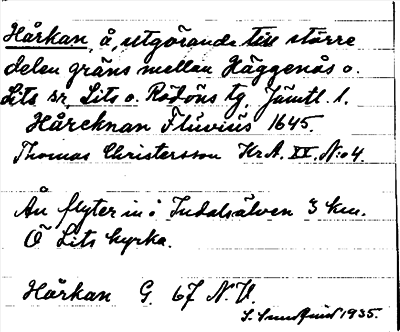 Hårkan, å, utgörande till större
delen gräns mellan Häggenås o.
Lits sr, Lits o. Rödöns tg, Jämtl. l.
Hårcknan Fluviüs 1645.
Thomas Christersson Kr.A. XX. N:o 4.
Ån flyter in i Indalsälven 3 km.
Ö Lits kyrka.
Hårkan G. 67 N.V.
1935.